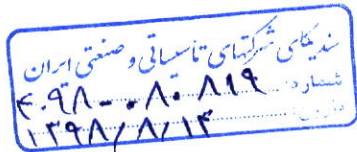 سندیکای شرکتهای تاسیساتی و صنعتی ایران
شماره: ۴۰۹۸-۰۸۰۸۱۹
تاریخ: ۱۳۹۸/۸/۱۴